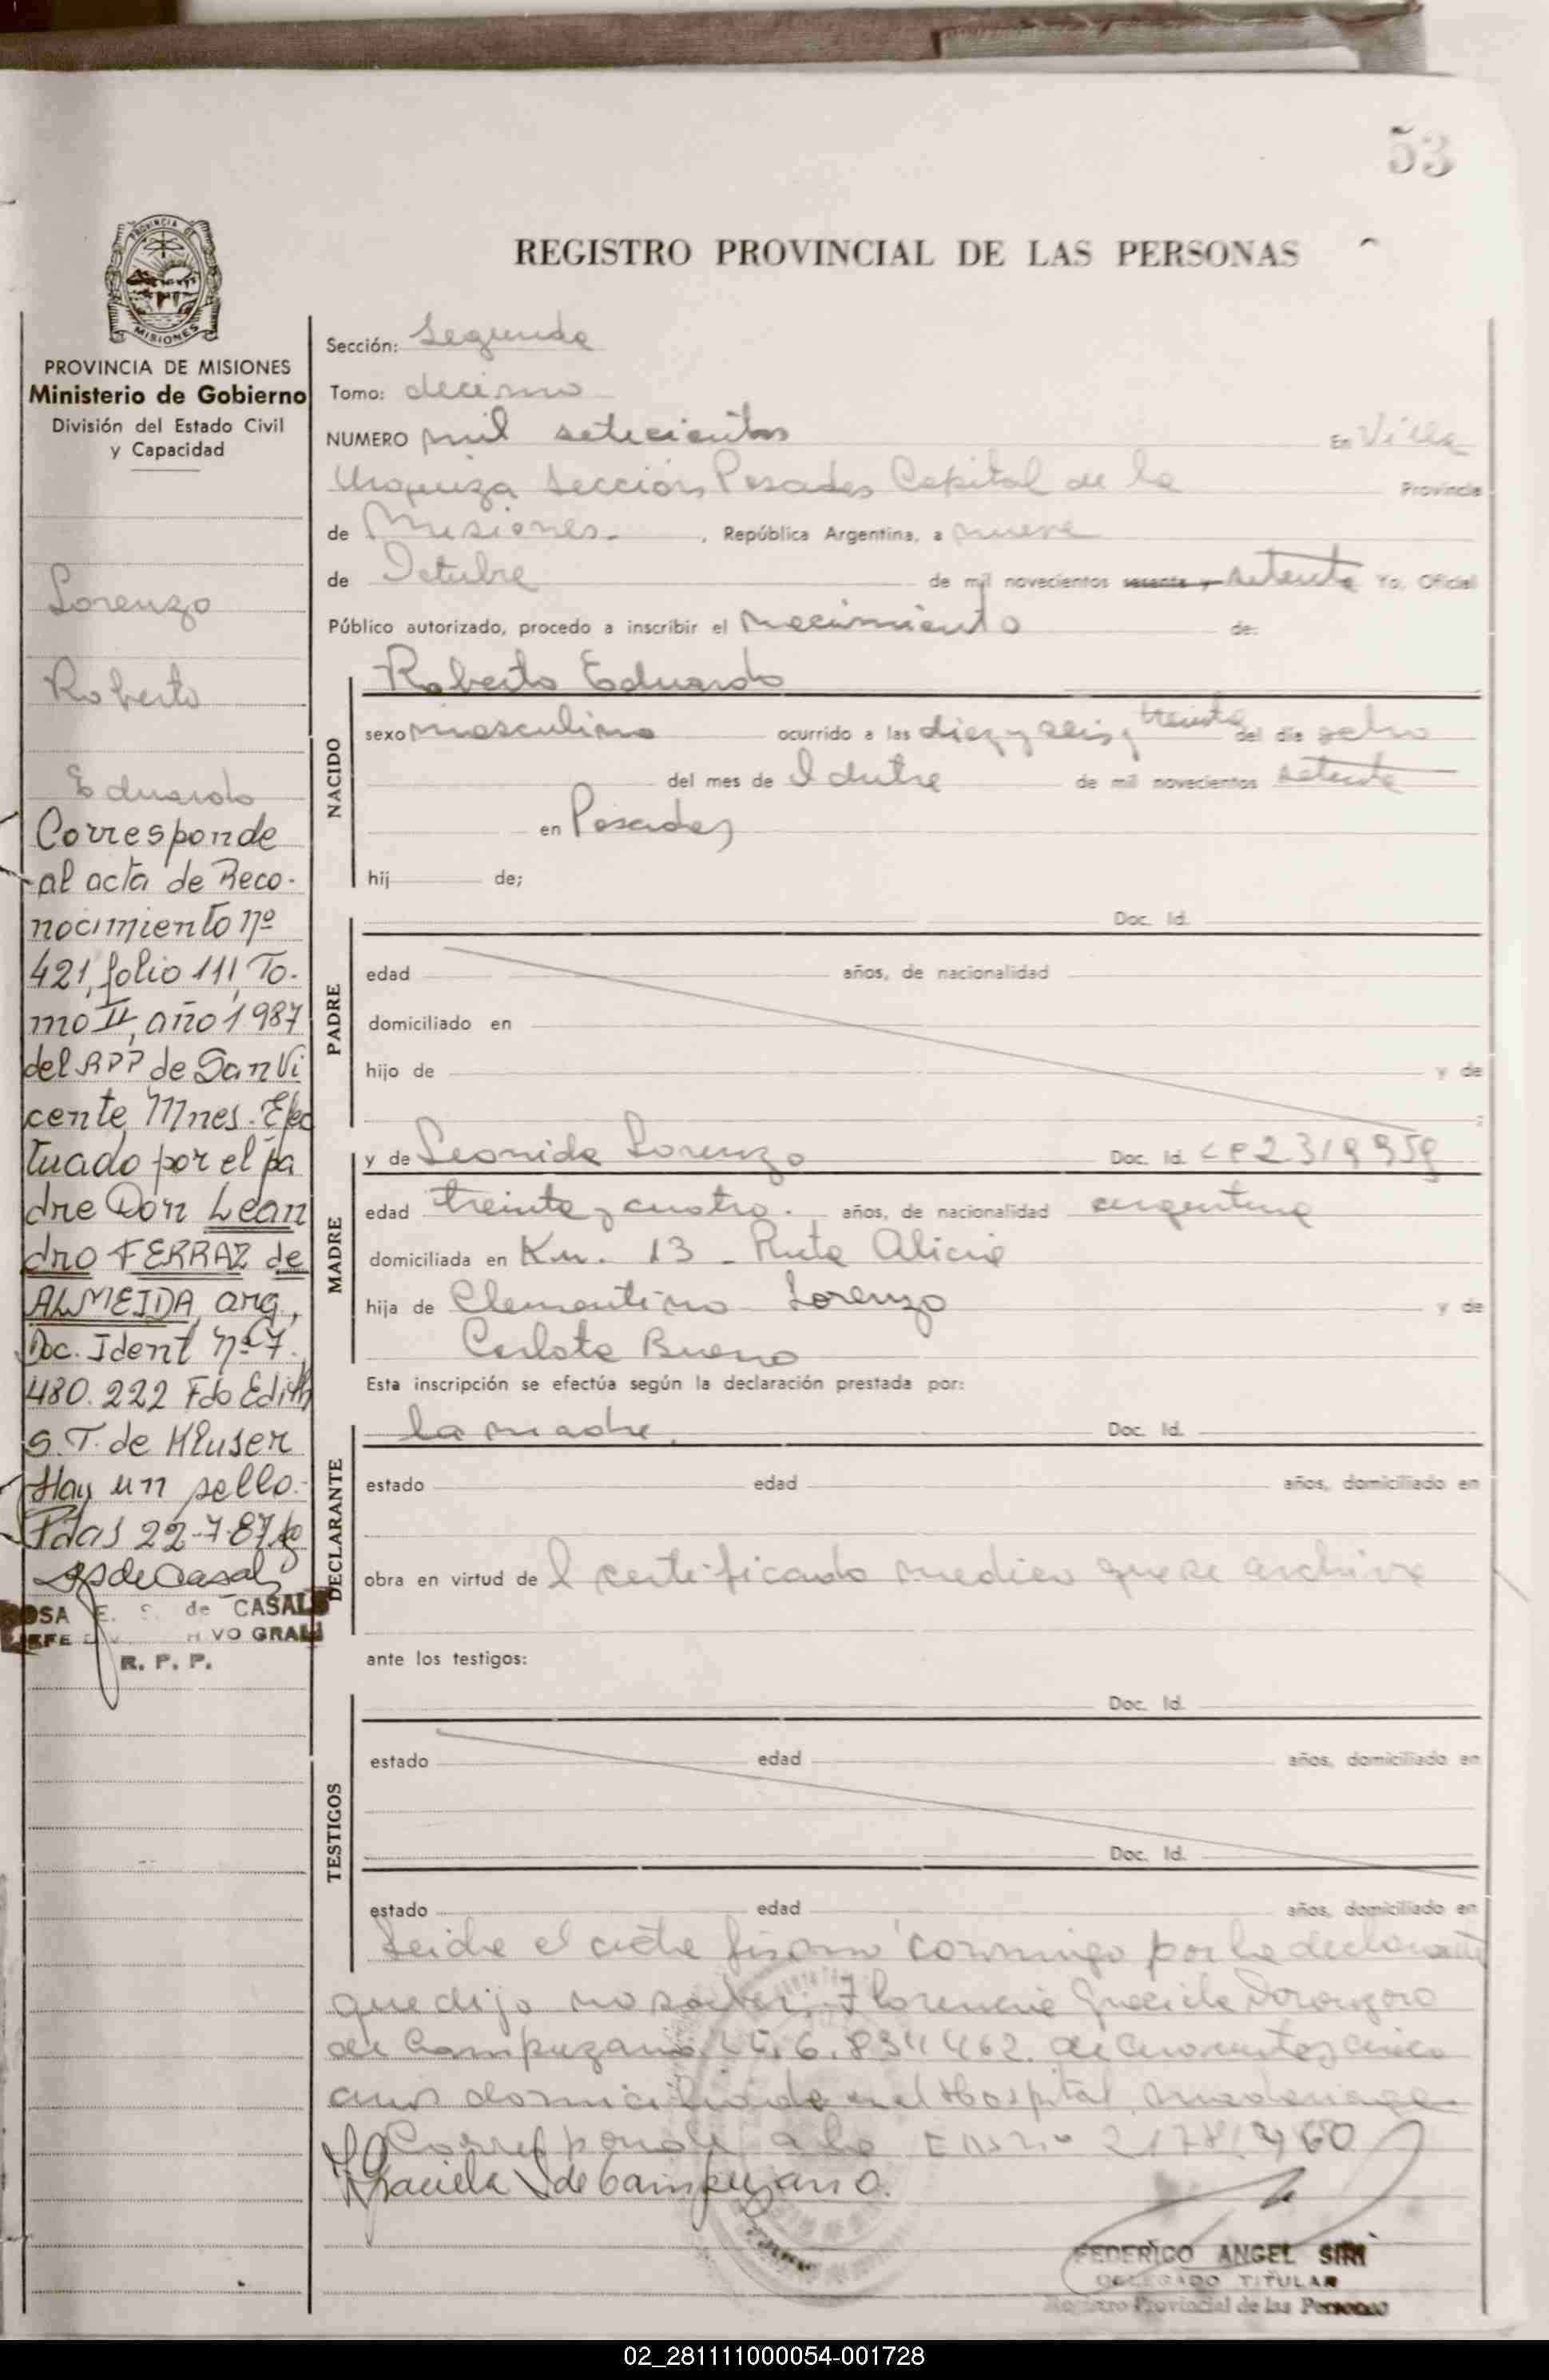 53
REGISTRO PROVINCIAL DE LAS PERSONAS
PROVINCIA DE MISIONES
MISIONES
PROVINCIA DE MISIONES
Ministerio de Gobierno
División del Estado Civil
y Capacidad
Lorenzo
Roberto
Eduardo
Corresponde
al acta de Reco-
nocimiento nº
421, folio 111, To-
mo II, año 1987
del RPP de San Vi
cente, Mnes. Efec
tuado por el pa
dre Don Lean
dro FERRAZ de
ALMEIDA, arg,
Doc. Ident nº 7.
480.222 Fdo Edith
S.T. de
Hay un sello.-
Pdas 22-7-87
ROSA E. S. de CASALS
JEFE VO GRAL
R. P. P.
Sección: Segunda
Tomo: decimo
NUMERO mil setecientos En Villa
Urquiza Sección Posadas Capital de la Provincia
de Misiones. , República Argentina, a nueve
de Octubre de mil novecientos sesenta y setenta Yo, Oficial
Público autorizado, procedo a inscribir el nacimiento de:
Roberto Eduardo
NACIDO
sexo masculino ocurrido a las diez y seis y treinta del día ocho
del mes de Octubre de mil novecientos setenta
en Posadas
hij de;
PADRE
Doc. Id.
edad años, de nacionalidad
domiciliado en
hijo de y de
;
MADRE
y de Leonida Lorenzo Doc. Id. CP 2319959
edad treinta y cuatro. años, de nacionalidad argentina
domiciliada en Km. 13 - Ruta Alicia
hija de Clementino Lorenzo y de
Carlota Bueno
Esta inscripción se efectúa según la declaración prestada por:
DECLARANTE
la madre. Doc. Id.
estado edad años, domiciliado en
obra en virtud de l certificado medico que se archiva
ante los testigos:
TESTIGOS
Doc. Id.
estado edad años, domiciliado en
Doc. Id.
estado edad años, domiciliado en
Leida el acta firmo conmigo por la declarante
que dijo no saber: Florencia Graciela
de Campuzano. de cuarenta y cinco
años domiciliada en el Hospital madariaga
Corresponde a la
Graciela de Campuzano.
FEDERICO ANGEL SIRI
DELEGADO TITULAR
Registro Provincial de las Personas
02_281111000054-001728